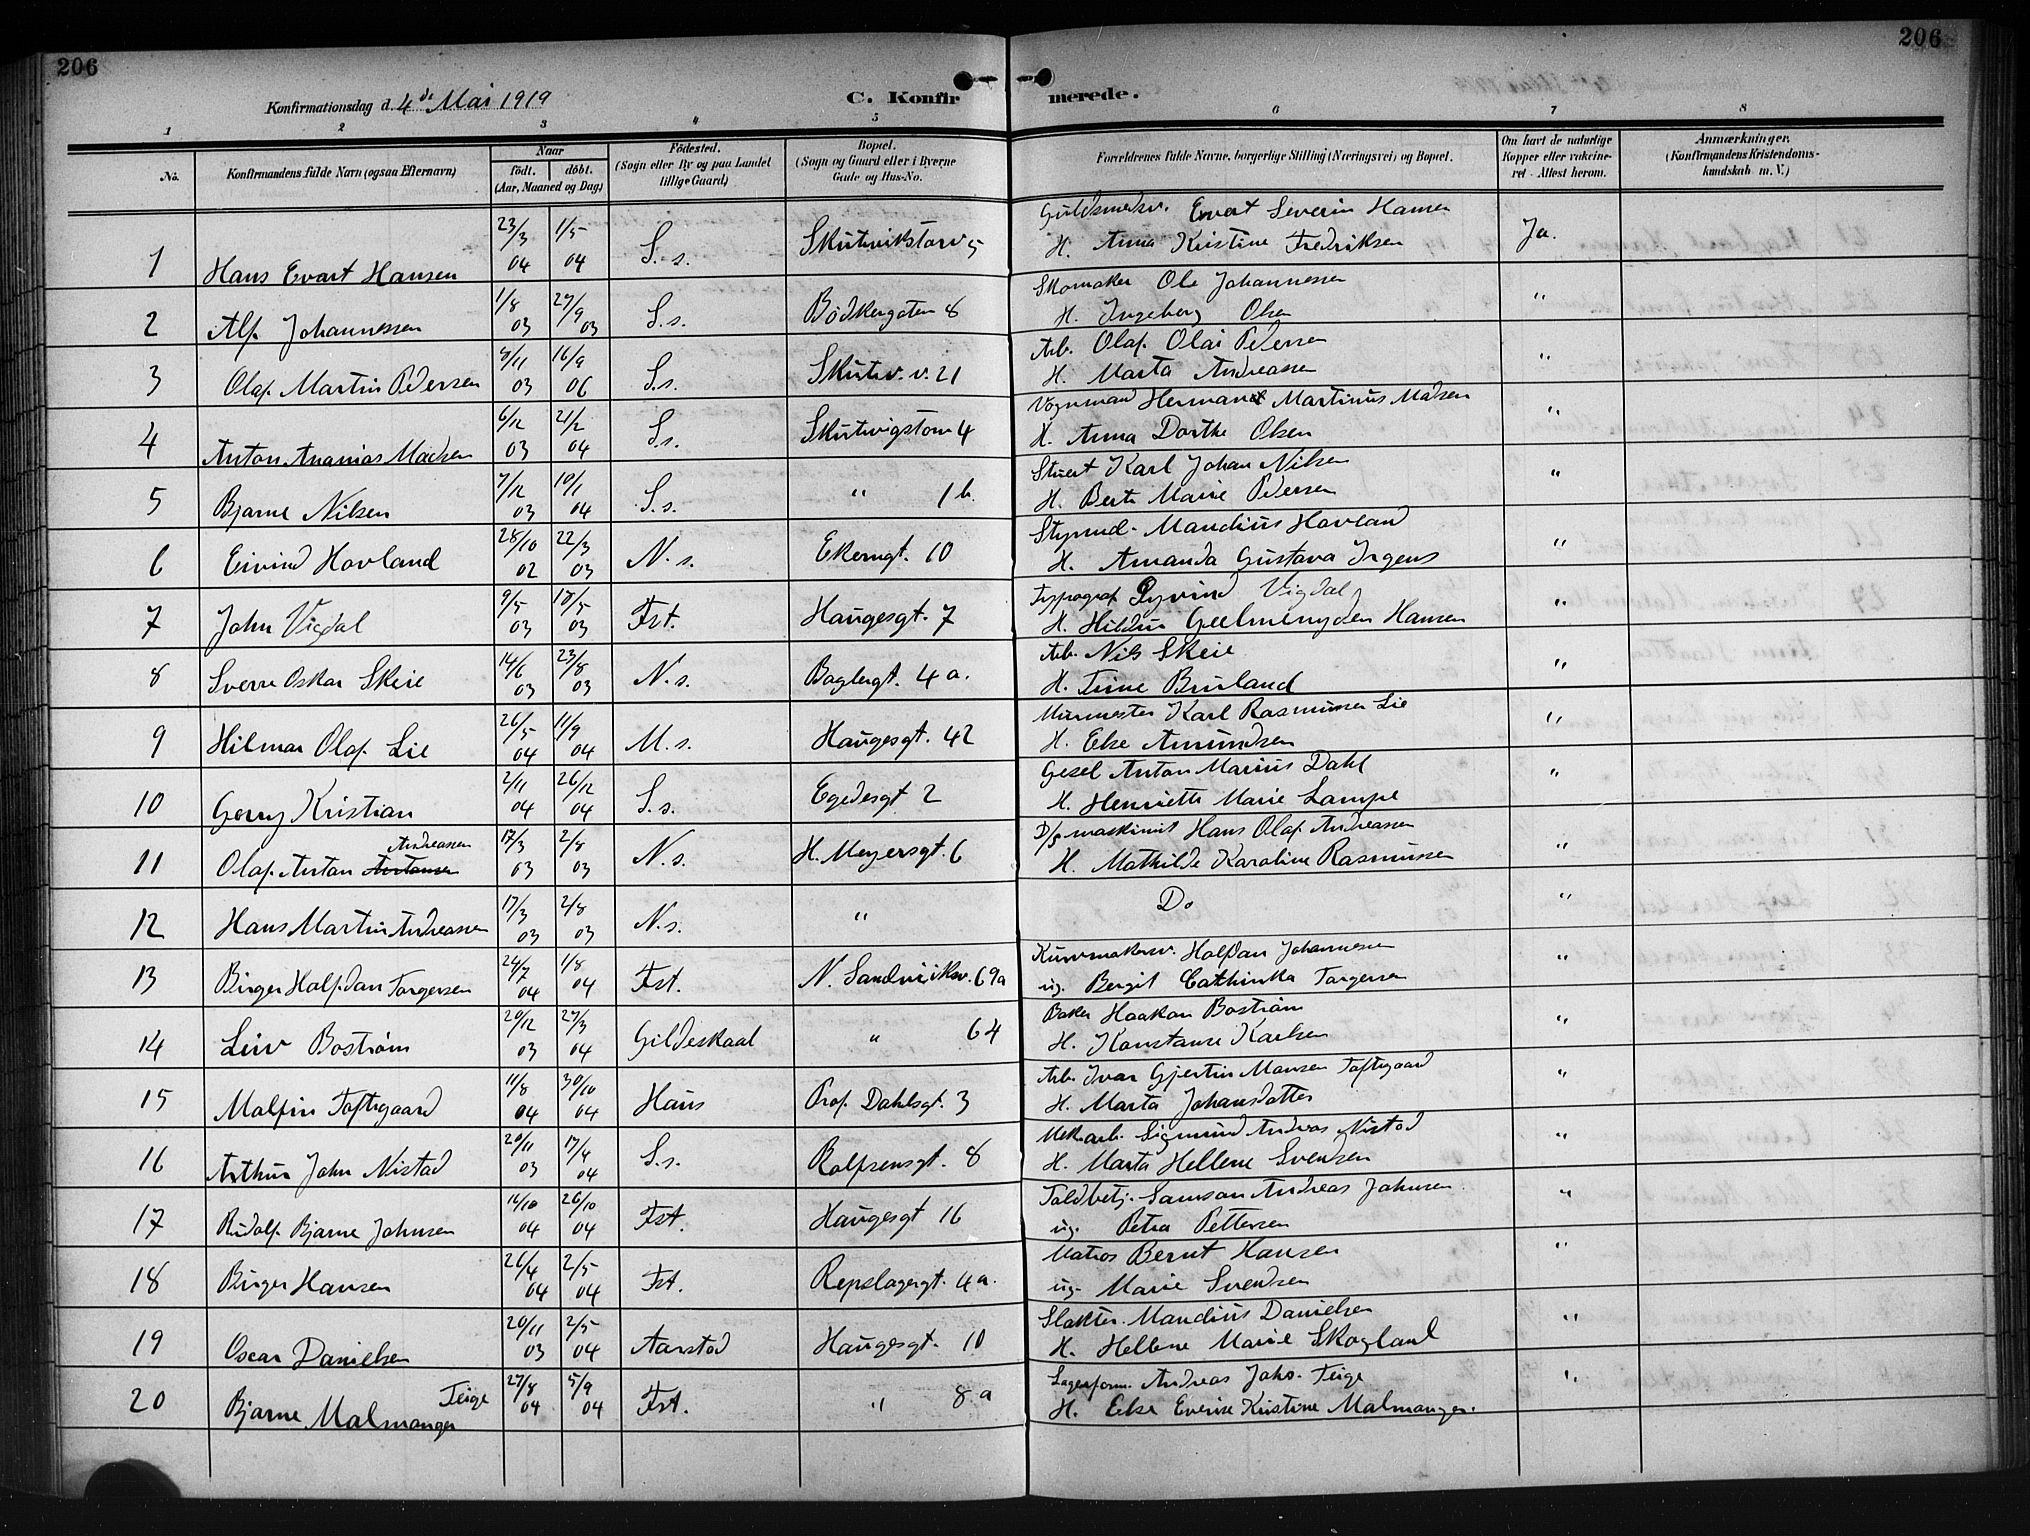 206
206
Konfirmationsdag d. 4de Mai 1919
C. Konfirmerede.
1 2 3 4 5 6 7 8
No.
Konfirmandens fulde Navn (ogsaa Efternavn)
Naar
født. døbt.
(Aar, Maaned og Dag)
Fødested.
(Sogn eller By og paa Landet
tillige Gaard)
Bopæl.
(Sogn og Gaard eller i Byerne
Gade og Hus-No.
Forældrenes fulde Navne, borgerlige Stilling (Næringsvei) og Bopæl.
Om havt de naturlige
Kopper eller vakcine-
ret - Attest herom.
Anmærkninger.
(Konfirmandens Kristendoms-
kundskab m. V.)
1 Hans Evart Hansen 23/3 04 1/5 04 S. s. Skutevikstorv 5 Guldsmedsv. Evart Severin Hansen Ja.
H. Anna Kristine Fredriksen
2 Alf. Johannessen 1/8 03 27/9 03 S. s. Bødkergaten 8 Skomaker Ole Johannessen "
H. Ingeborg Olsen
3 Olaf Martin Pedersen 8/11 03 16/9 06 S. s. Skutev. v. 21 Arb. Olaf Olai Pedersen "
H. Marta Andreassen
4 Anton Ananias Madsen 6/12 03 21/2 04 S. s. Skutevigstorv 4 Vognmand Herman Martinus Madsen "
H. Anna Dorthe Olsen
5 Bjarne Nilsen 7/12 03 10/1 04 S. s. " 1 b. Stuert Karl Johan Nilsen "
H. Berte Marie Pedersen
6 Eivind Hovland 28/10 02 22/3 03 N. s. Ekerngt. 10 Styrmd. Mandius Hovland "
H. Amanda Gustava Irgens
7 John Vigdal 9/5 03 18/5 03 Fst. Haugesgt. 7 Typograf Øyvind Vigdal "
H. Hildur Geelmuyden Hansen
8 Sverre Oskar Skeie 14/6 03 23/8 03 N. s. Baglergt. 4 a. Arb. Nils Skeie "
H. Trine Builand
9 Hilmar Olaf Lie 26/5 04 11/9 04 M. s. Haugesgt. 42 Murmester Karl Rasmussen Lie "
H. Else Amundsen
10 Georg Kristian 2/11 04 26/12 04 S. s. Egedesgt 2 Gesel Anton Marius Dahl "
H. Henriette Marie Lampe
11 Olaf Anton Antonsen Andreassen 17/3 03 2/8 03 N. s. H. Meyersgt. 6 D/s maskinist Hans Olaf Andreassen "
H. Mathilde Karoline Rasmussen
12 Hans Martin Andreassen 17/3 03 2/8 03 N. s. " Do "
13 Birger Halfdan Torgersen 24/7 04 1/8 04 Fst. N. Sandviksv. 69a Kurvmakersv. Halfdan Johannessen "
ug. Bergit Cathinka Torgersen
14 Leiv Bostrøm 20/12 03 27/3 04 Gildeskaal " 64 Baker Haakon Bostrøm "
H. Konstanse Karlsen
15 Malfin Toftegaard 11/8 04 30/10 04 Haus Prof. Dahlsgt. 3 Arb. Ivar Gjertin Monsen Toftegaard "
H. Marta Johansdotter
16 Arthur John Nistad 20/11 03 17/4 04 S. s. Rolfsensgt. 8 Mek. arb. Sigmund Andreas Nistad "
H. Marta Hellene Svensen
17 Rudolf Bjarne Johnsen 16/10 04 26/10 04 Fst. Haugesgt 16 Toldbetj. Samson Andreas Johnsen "
ug. Petra Pettersen
18 Birger Hansen 26/4 04 2/5 04 Fst. Repslagergt. 4a. Matros Bernt Hansen "
ug. Marie Svendsen
19 Oscar Danielsen 20/11 03 2/5 04 Aarstad Haugesgt. 10 Slakter. Mandius Danielsen "
H. Hellene Marie Skogland
20 Bjarne Malmanger Teige 27/8 04 5/9 04 Fst. " 8 a Lagerform. Andreas Johs. Teige "
H. Else Everine Kristine Malmanger.